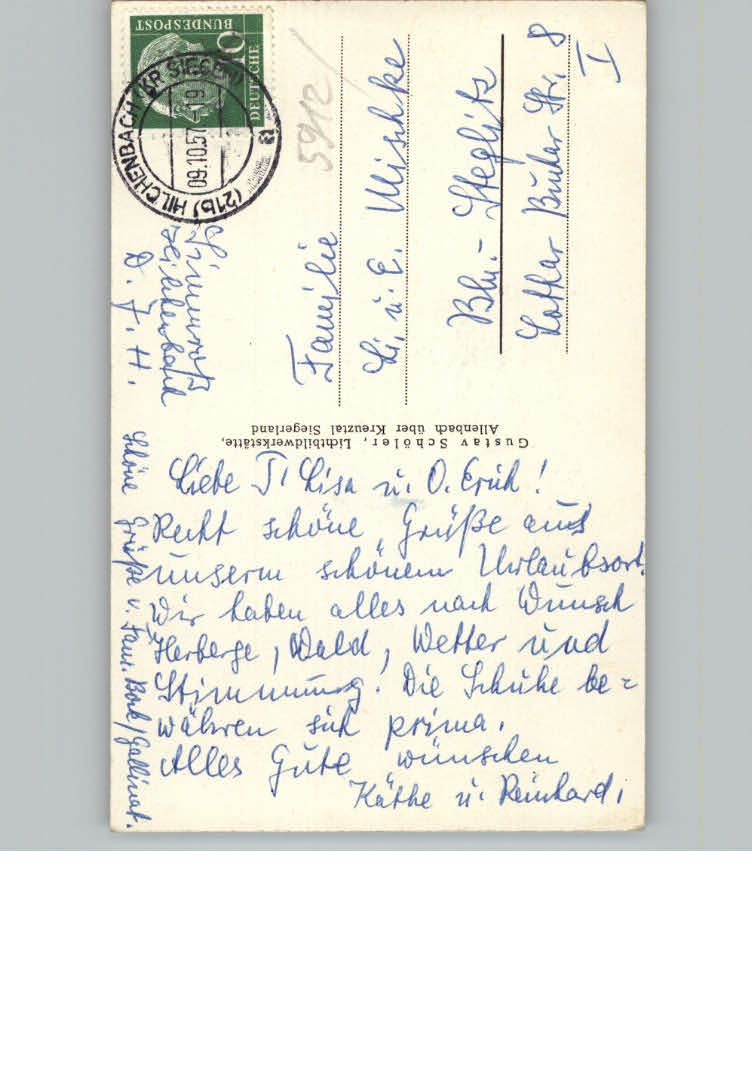 Liebe T. Lisa u. O. Erich!
Recht schöne Grüße aus
unserm schönem Urlaubsort.
Wir haben alles nach Wunsch
Herberge, Wald, Wetter und
Stimmung. Die Schuhe be=
währen sich prima.
Alles Gute wünschen
Käthe u. Reinhard.
Schöne Grüße v. Fam. Bork/Gallinat.
D. J. H.
Gustav Schöler, Lichtbildwerkstätte,
Allenbach über Kreuztal Siegerland
DEUTSCHE
BUNDESPOST
10
(21b) HILCHENBACH (KR SIEGEN)
09.10.57
5912
Familie
Li. u. E. Mischke
Bln.- Steglitz
Lothar Bucher Str. 8
I